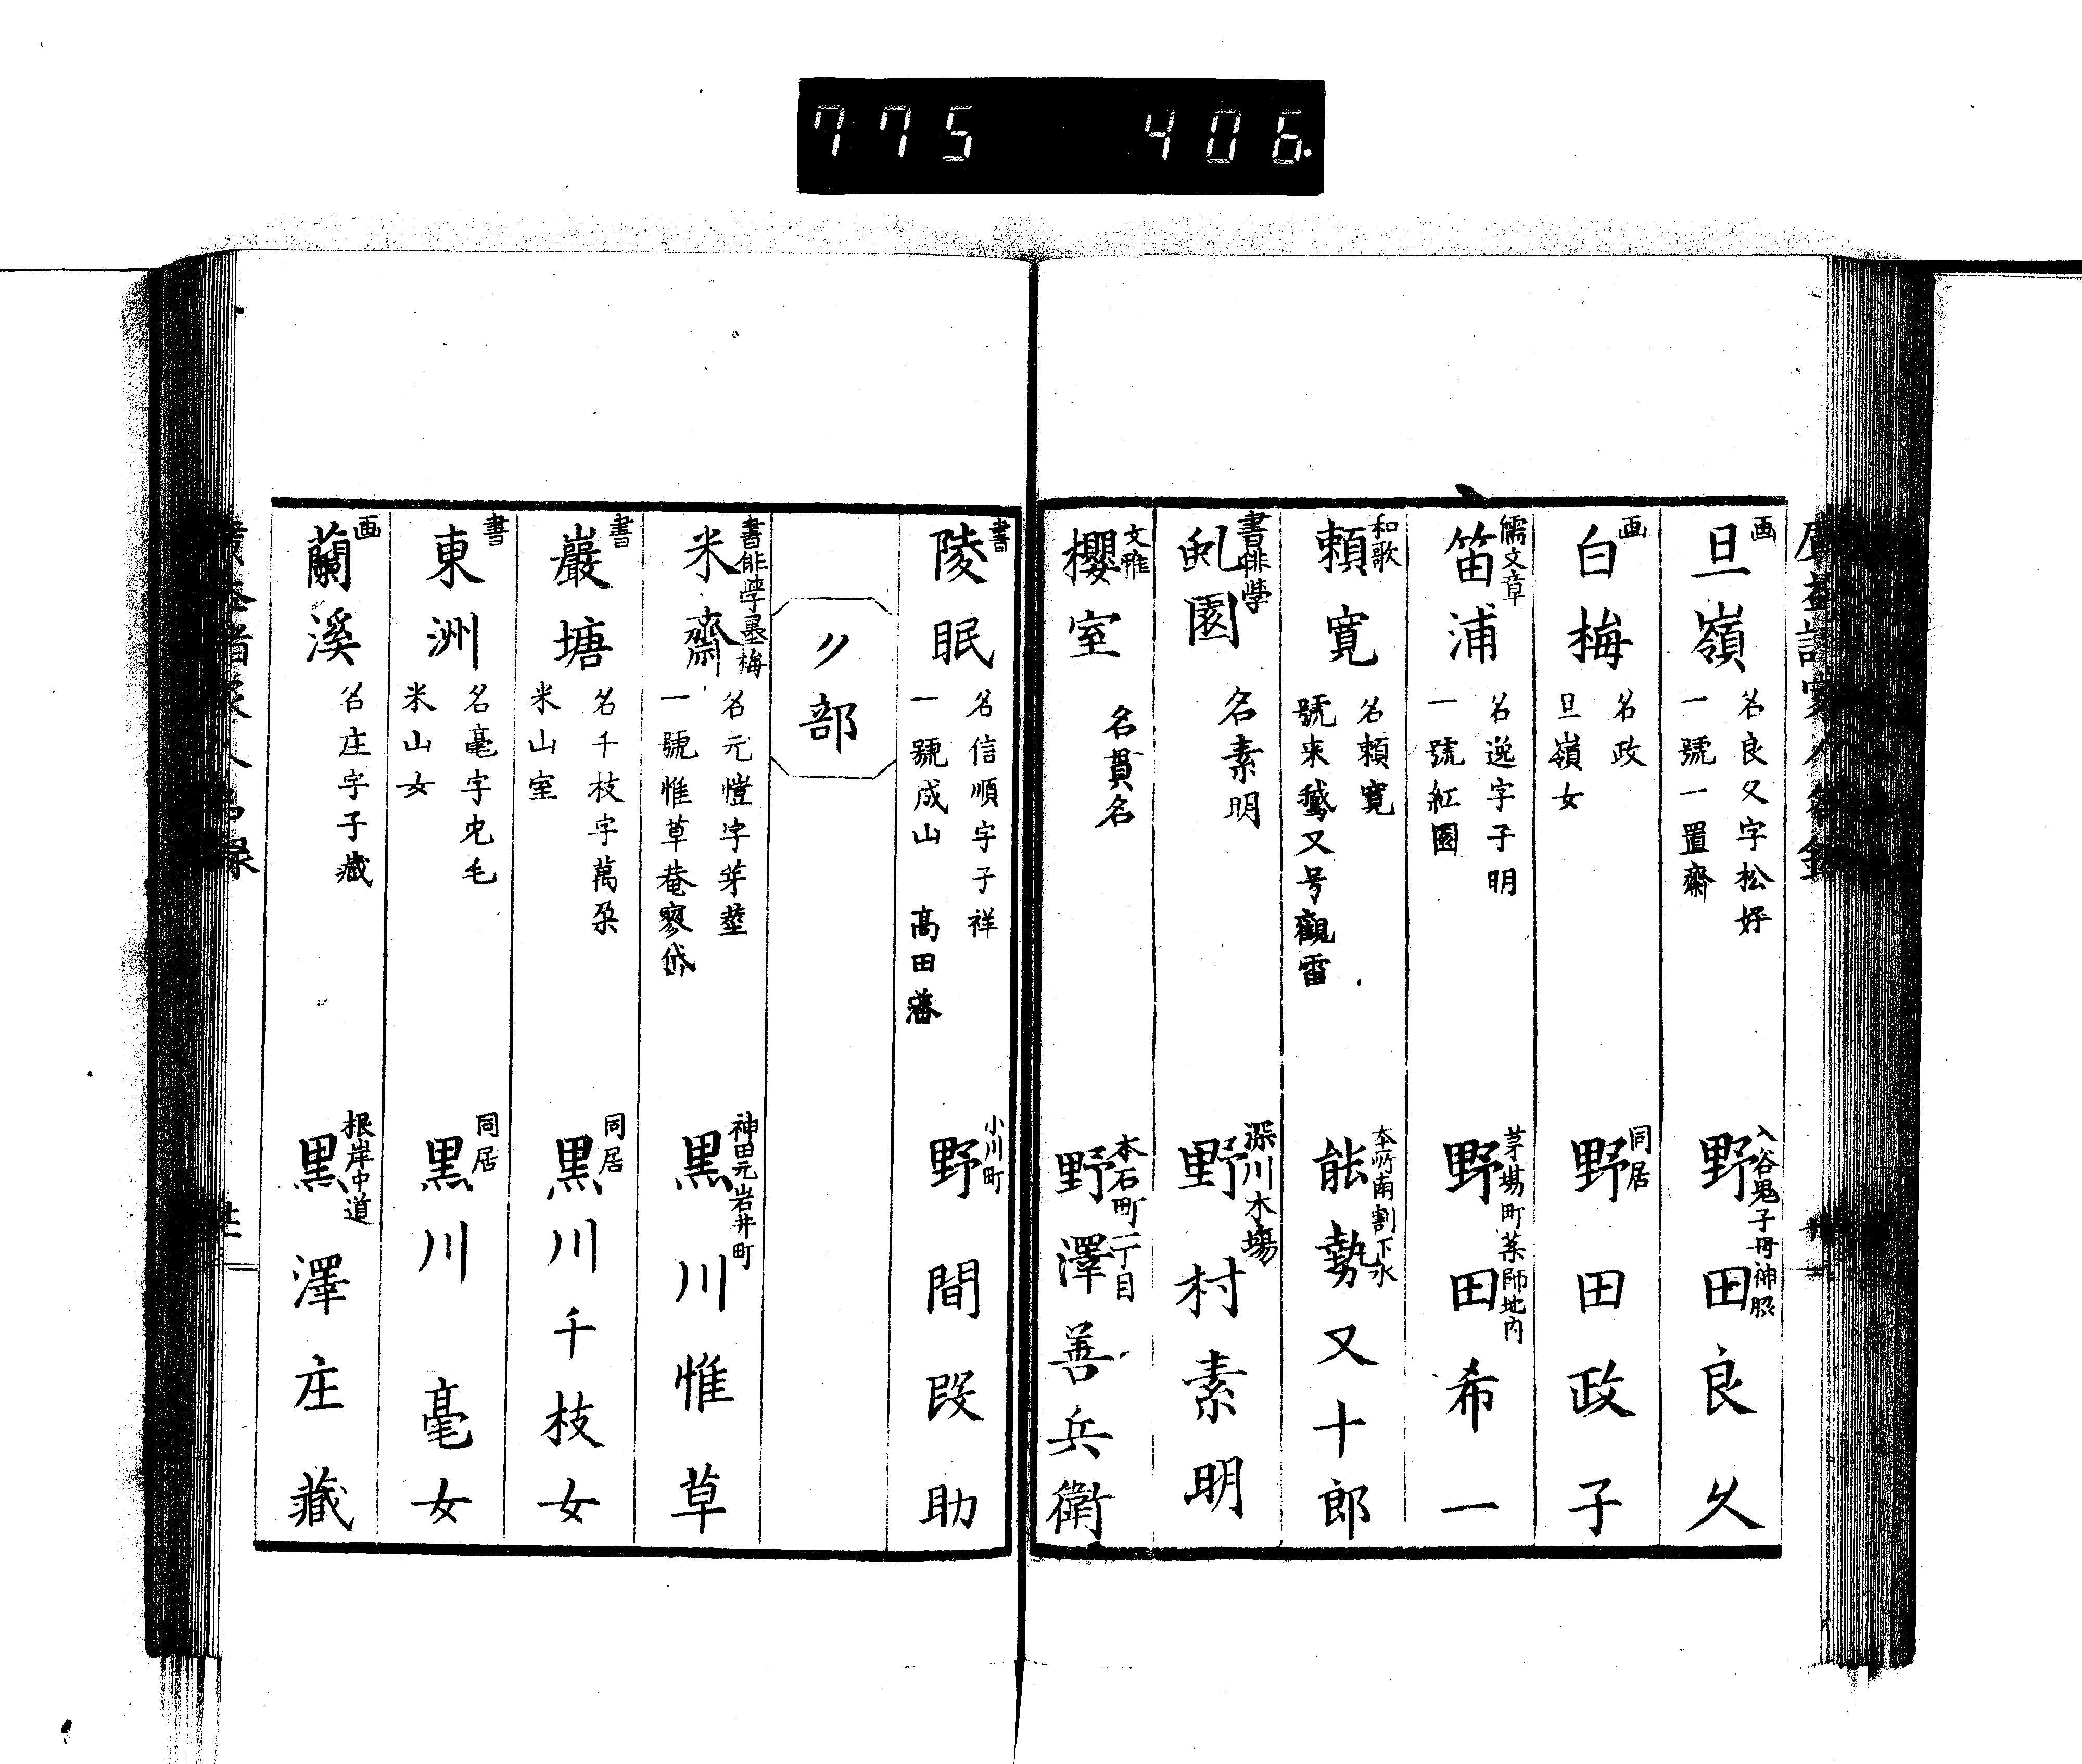 775 406.
画
旦嶺
名良久字松好
一號一置齋
入谷鬼子母神脇
野田良久
画
白梅
名政
旦嶺女
同居
野田政子
儒文章
笛浦
名逸字子明
一號紅園
茅場町薬師地内
野田希一
和歌
頼寛
名頼寛
號来鵞又号觀雷
本所南割下水
能勢又十郎
書俳学
虬園
名素明
深川木場
野村素明
文雅
櫻室
名貫名
本石町二丁目
野澤善兵衛
書
陵眠
名信順字子祥
一號成山 高田藩
小川町
野間段助
ク部
書俳学墨梅
米齋
名元愷字芽莖
一號惟草菴寥岱
神田元岩井町
黒川惟草
書
巖塘
名千枝字萬朶
米山室
同居
黒川千枝女
書
東洲
名毫字毛
米山女
同居
黒川毫女
画
蘭溪
名庄字子藏
根岸中道
黒澤庄藏